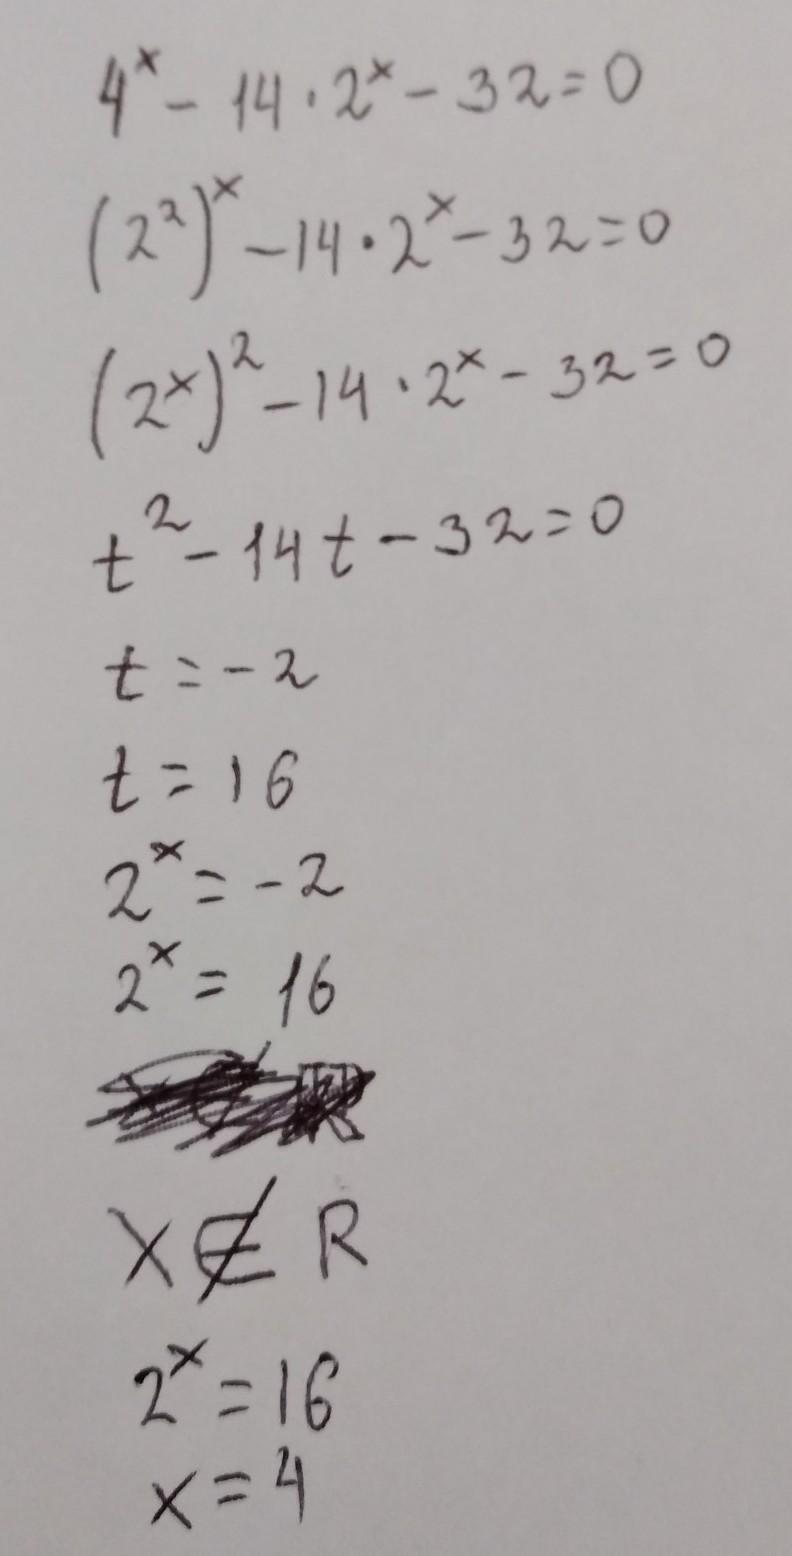 4ˣ - 14 · 2ˣ - 32 = 0
(2²)ˣ - 14 · 2ˣ - 32 = 0
(2ˣ)² - 14 · 2ˣ - 32 = 0
t² - 14t - 32 = 0
t = -2
t = 16
2ˣ = -2
2ˣ = 16
X ∉ R
2ˣ = 16
x = 4